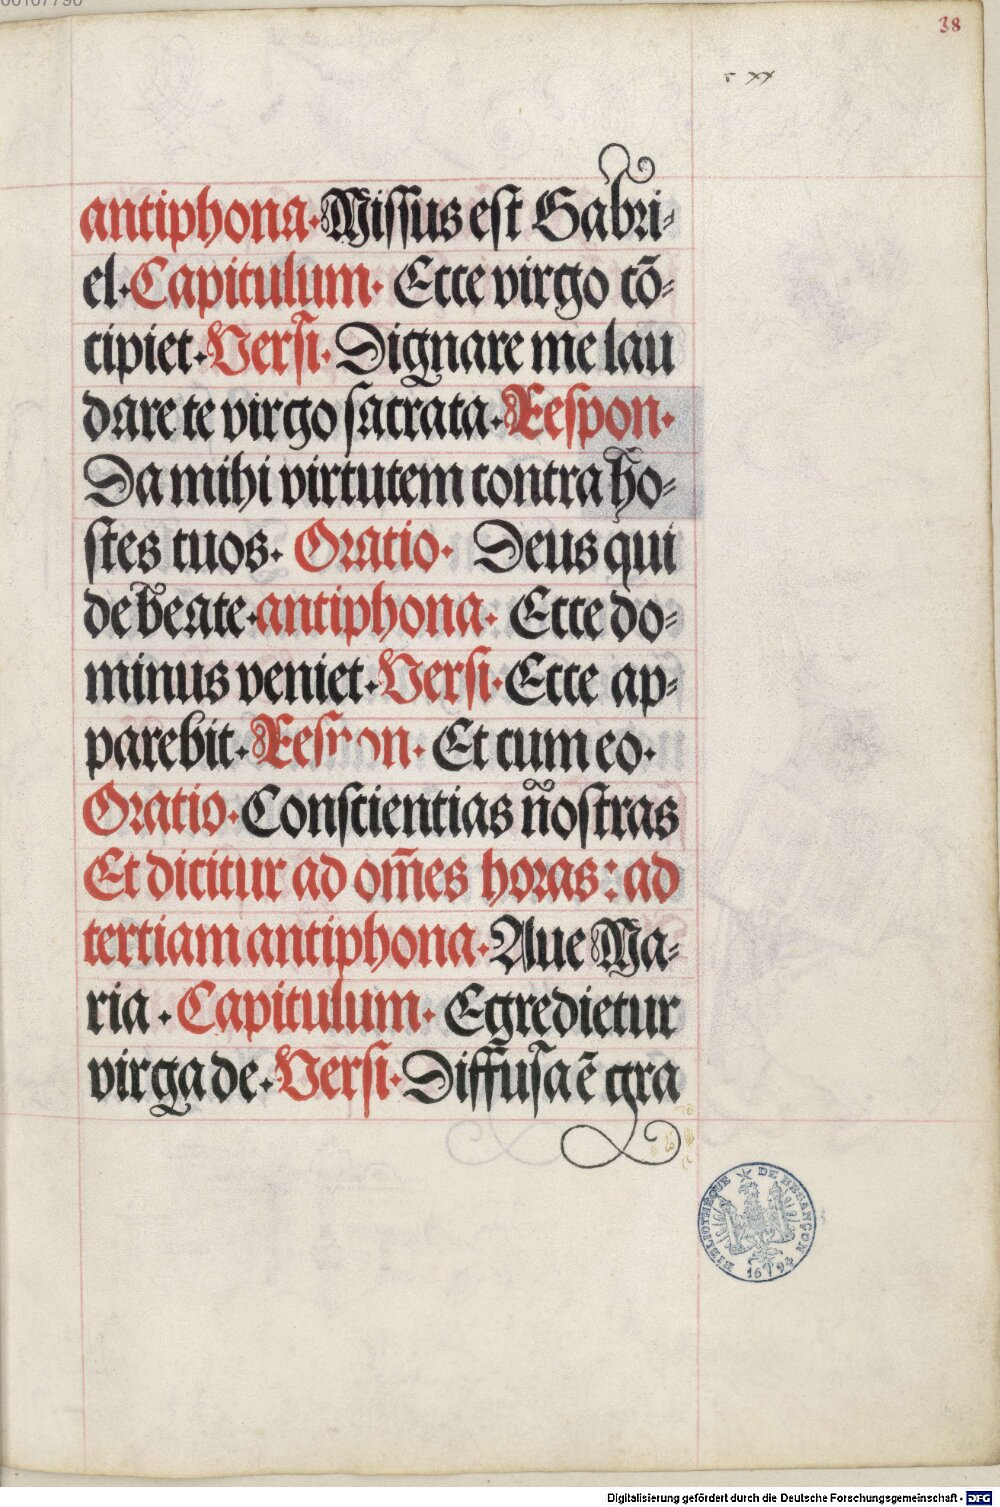 00107790
38
r xx
antiphona·Missus est Gabri⸗
el·Capitulum· Ecce virgo cō⸗
cipiet·Versi·Dignare me lau
dare te virgo sacrata·Respon·
Da mihi virtutem contra ho⸗
stes tuos· Oratio· Deus qui
de beate·antiphona· Ecce do⸗
minus veniet·Versi·Ecce ap⸗
parebit·Respon· Et cum eo·
Oratio·Conscientias nostras
Et dicitur ad om̄es horas: ad
tertiam antiphona·Aue Ma⸗
ria·Capitulum· Egredietur
virga de·Versi·Diffusa ē gra
BIBLIOTHÈQUE DE BESANÇON
1694
Digitalisierung gefördert durch die Deutsche Forschungsgemeinschaft - DFG